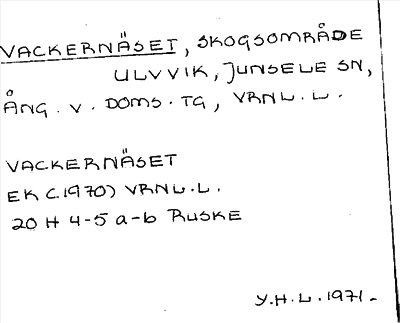 VACKERNÄSET, SKOGSOMRÅDE
ULVVIK, JUNSELE SN,
ÅNG. V. DOMS. TG, VRNL. L.
VACKERNÄSET
EK (1970) VRNL. L.
20 H 4-5 a-b RUSKE
Y.H.L. 1971.